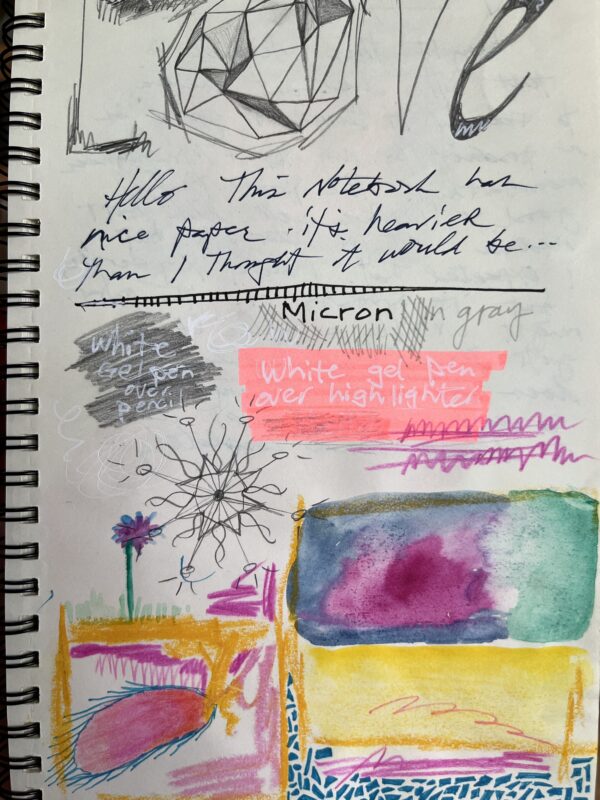 Love
Hello This Notebook has
nice paper. it's heavier
Than I Thought it would be...
Micron in gray
White
Gel pen
over
pencil
White gel pen
over highlighter